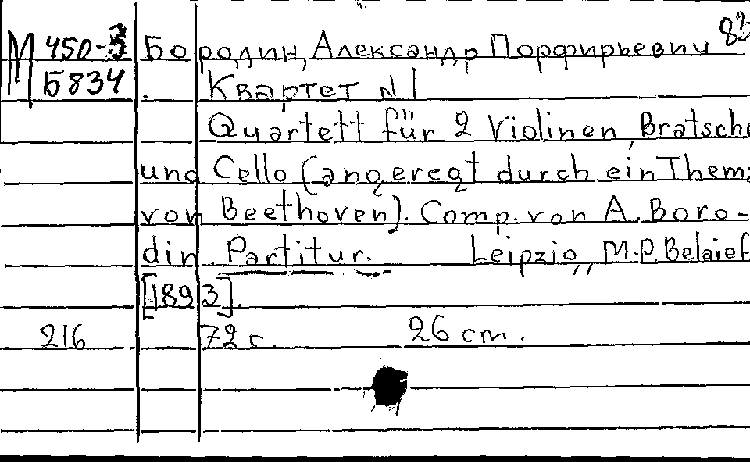 М 450-3 Бородин, Александр Порфирьевич 83
Б834
Квартет N 1
Quartett für 2 Violinen, Bratsche
und Cello (angeregt durch ein Thema
von Beethoven). Comp. von A. Boro-
din. Partitur. Leipzig, M.P. Belaieff
[1893].
216 72 с. 26 cm.